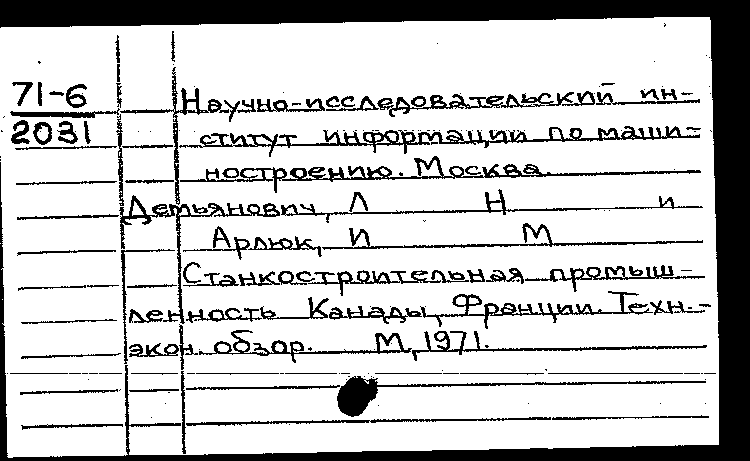 71-6
2031
Научно-исследовательский ин-
ститут информации по маши-
ностроению. Москва.
Демьянович, Л Н и
Арлюк, И М
Станкостроительная промыш-
ленность Канады, Франции. Техн.-
экон. обзор. М, 1971.